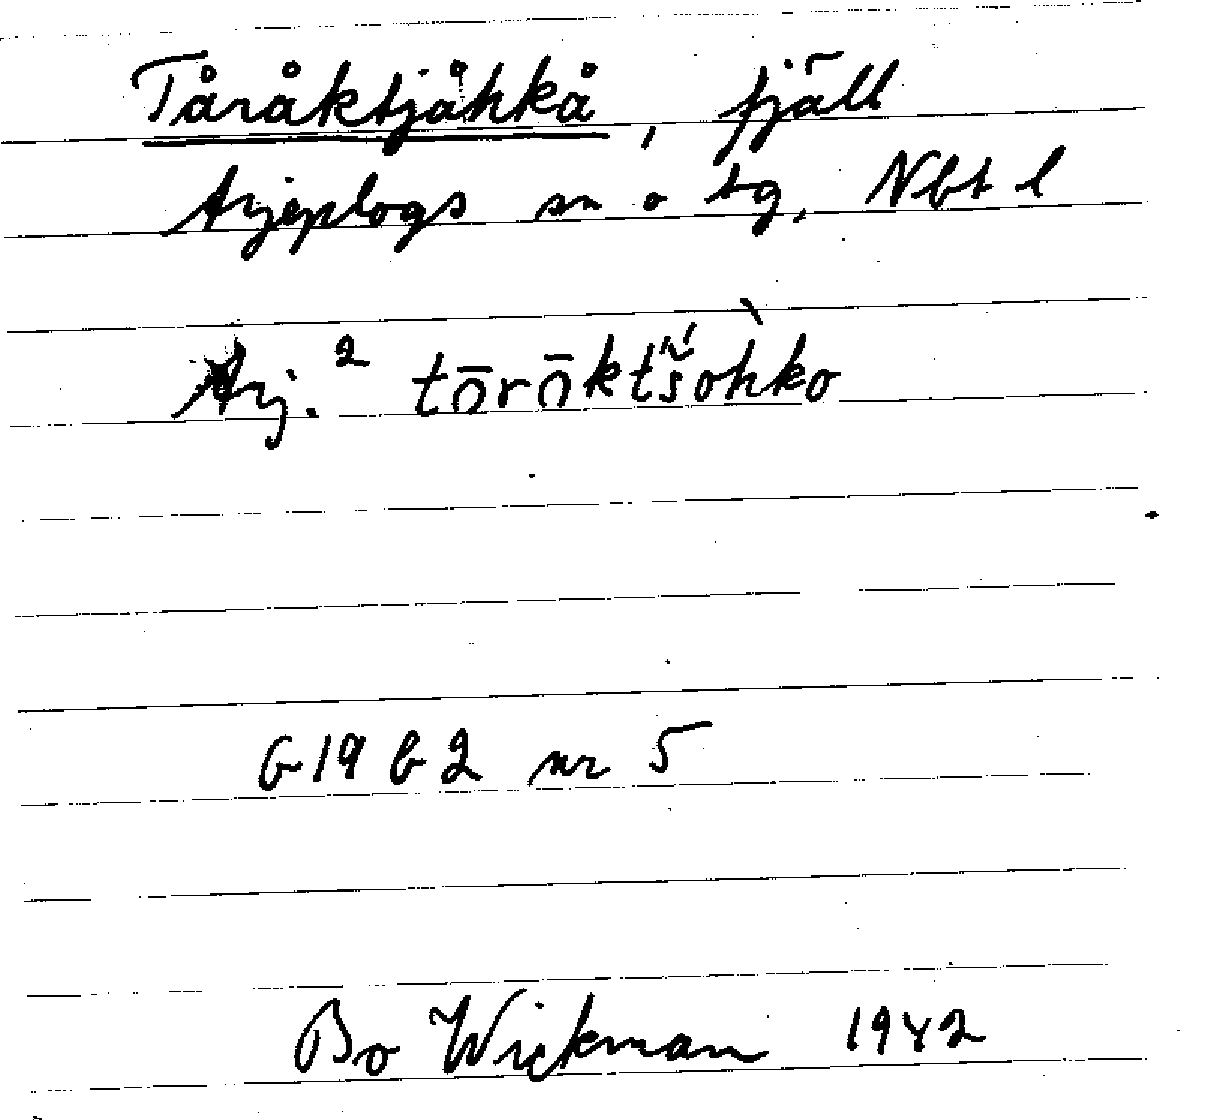 Tåråktjåhkå, fjäll
Arjeplogs sn o tg, Nbt l
Arj.² tōrōktš̌ohko
G 19 b 2 nr 5
Bo Wickman 1942